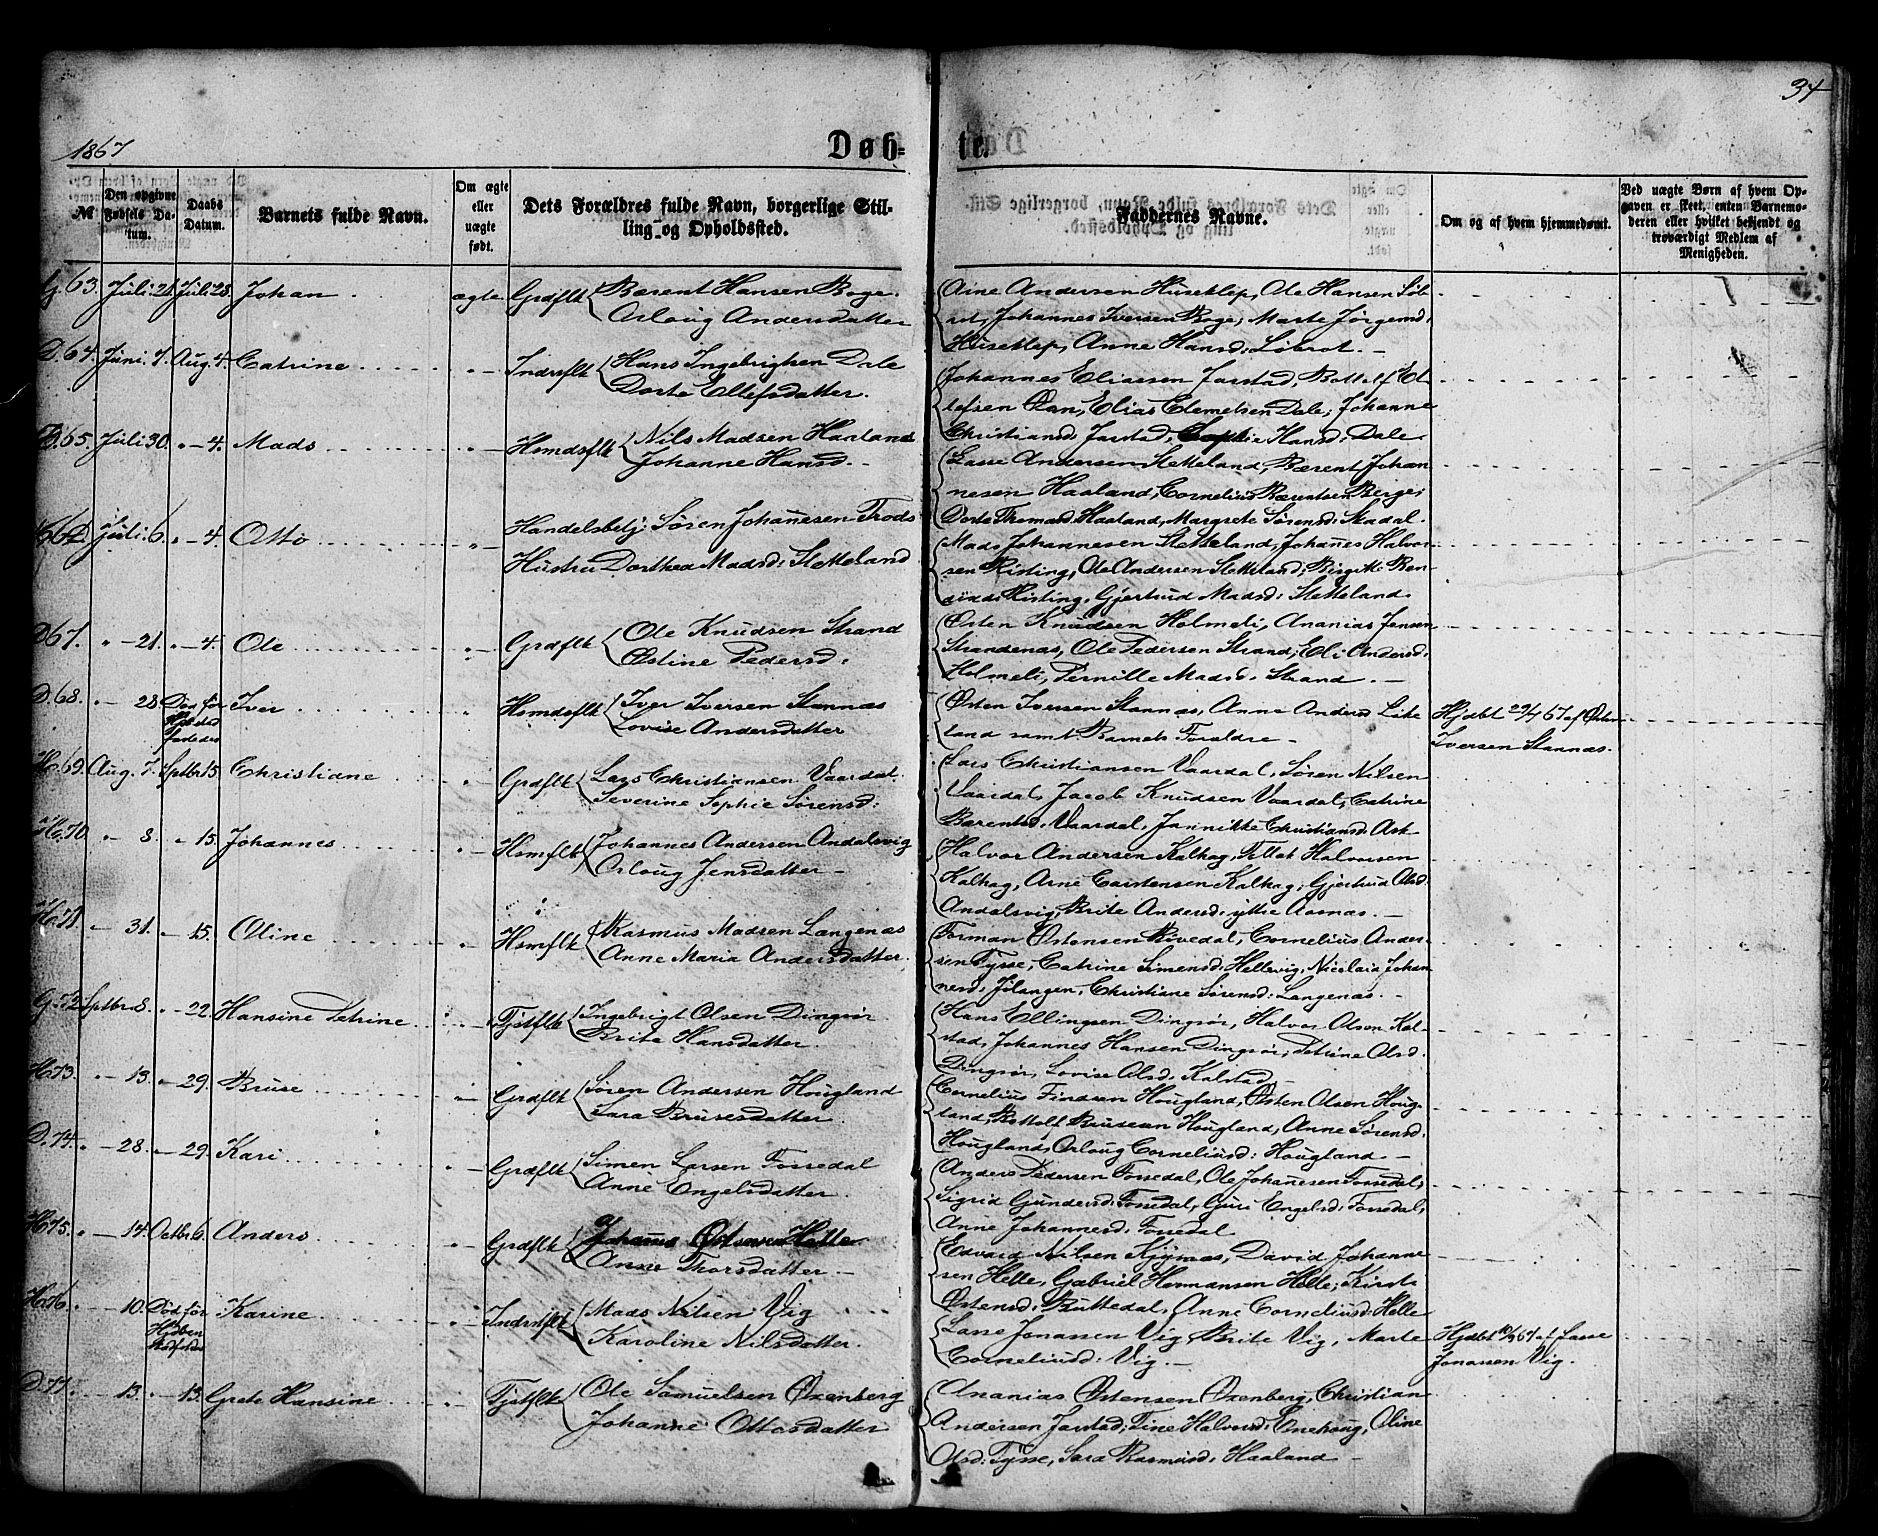 34
1867
Døb-
te.
№
Den opgivne Fødsels Datum.
Daabs Datum.
Barnets fulde Navn.
Om ægte eller uægte født.
Dets Forældres fulde Navn, borgerlige Stilling og Opholdssted.
Faddernes Navne.
Om og af hvem hjemmedøbt.
Ved uægte Børn af hvem Opgaven er skeet, enten Barnemoderen eller hvilket bekjendt og troværdigt Medlem af Menigheden.
G. 63. Juli 21. Juli 28. Johan ægte Grdflk Bærent Hansen Boge.
Orloug Andersdatter
Hansen
Johannes Iversen Boge, Marte Jørgensd:
Husetlep, Anne Hansd: Løbrot.
D. 64. Juni 7. Aug. 4. Catrine " Indrsflk Hans Ingebrigtsen Dale
Dorte Ellefsdatter.
Johannes Eliesen Jarstad, Bottolf El-
lefsen Øan, Elias Clemetsen Dale, Johanne
Christiansd: Jarstad, Sophie Hansd: Dale.
65. Juli 30. " 4. Mads " Hsmdsflk Nils Madsen Haaland
Johanne Hansd.
Lasse Andersen Stetteland, Bærent Johan-
nesen Haaland, Cornelius Bærentsen Berge;
Dorte Thomasd: Haaland, Margrete Sørensd: Skadal.
Juli 6. " 4. Otto " Handelsbetj: Søren Johanesen Trods
Hustru Dorthea Madsd: Stetteland
Mads Johannesen Stetteland, Johanes Halvor-
sen Risting, Ole Andersen Stetteland, Birgitte
Risting, Gjertrud Madsd: Stetteland.
D. 67. " 21. " 4. Ole " Grdflk Ole Knudsen Strand
Østine Pedersd:
Østen Knudsen Holmeli, Ananias Jensen
Strandenæs, Ole Pedersen Strand, Eli Andersd:
Holmeli, Pernille Madsd: Strand.
D. 68. " 28. Død før Iver " Hsmdsflk Iver Iversen Stannæs
Lovise Andersdatter
Østen Iversen Stannæs, Anne Andersd: Like-
land samt Barnets Forældre
Hjdbt 29/7 67 af Østen
Iversen Stannæs.
H. 69. Aug. 7. Sptbr 15. Christiane " Grdflk Lars Christiansen Vaardal.
Severine Sophie Sørensd:
Lars Christiansen Vaardal, Søren Nilsen
Vaardal, Jacob Knudsen Vaardal, Catrine
Bærentsd: Vaardal, Jannikke Christiansd: Ask
H. 70. " 8. " 15. Johannes " Hsmflk Johannes Andersen Andalsvig
Orloug Jensdatter
Halvor Andersen Kalhag, Tollak Halvorsen
Kalhag, Arne Carstensen Kalhag; Gjertrud Olsd:
Andalsvig, Brite Andersd: ytre Aasnæs.
H. 71. " 31. " 15. Oline " Hsmflk Rasmus Madsen Langenæs
Anne Maria Andersdatter.
Forman Østensen Rivedal, Cornelius Ander-
sen Tysse, Catrine Simensd: Hellevig, Nicolaia Johan-
nesd: Jilangen, Christiane Sørensd: Langenæs.
G. 72. Sptbr 8. " 22. Hansine Petrine " Tjstflk Ingebrigt Olsen Dingsør
Brite Hansdatter.
Hans Ellingsen Dingsør, Halvor Olsen Kal-
stad, Johannes Hansen Dingsør, Petrine Olsd:
Dingsør, Lovise Olsd: Kalstad
H. 73. " 13. " 29. Bruse " Grdflk Søren Andersen Hougland
Sara Brusesdatter
Cornelius Findsen Hougland, Østen Olsen Houg-
land, Bottolf Brusesen Hougland, Anne Sørensd:
Hougland, Orloug Corneliusd: Hougland
D. 74. " 28. " 29. Kari " Grdflk Simen Larsen Fossedal
Anne Engelsdatter.
Anders Pedersen Fossedal, Ole Johanesen Fossedal,
Sigrid Gundersd: Fossedal, Guri Engelsd: Fossedal,
Anne Johannesd: Fossedal
H. 75. " 14. Octbr 6. Anders " Grdflk Johanes Østensen Helle
Anne Thorsdatter
Edvard Nilsen Kjymæs, David Johanne-
sen Helle, Gabriel Hermansen Helle; Kirste
Østensd: Buttedal, Anne Corneliusd: Helle
H. 76. " 10. Død før Karine " Indrstflk Mads Nilsen Vig
Karoline Nilsdatter.
Lasse Jonassen Vig, Brite Vig, Marte
Corneliusd: Vig.
Hjdbt 10/9 67 af Lasse
Jonassen Vig.
D. 77. " 13. " 13. Grete Hansine " Tjstflk Ole Samuelsen Oxenberg
Johanne Ottosdatter
Ananias Østensen Oxenberg, Christian
Andersen Jarstad, Tine Halvorsd: Enehoug, Oline
Olsd: Tysse, Sara Rasmusd: Haaland